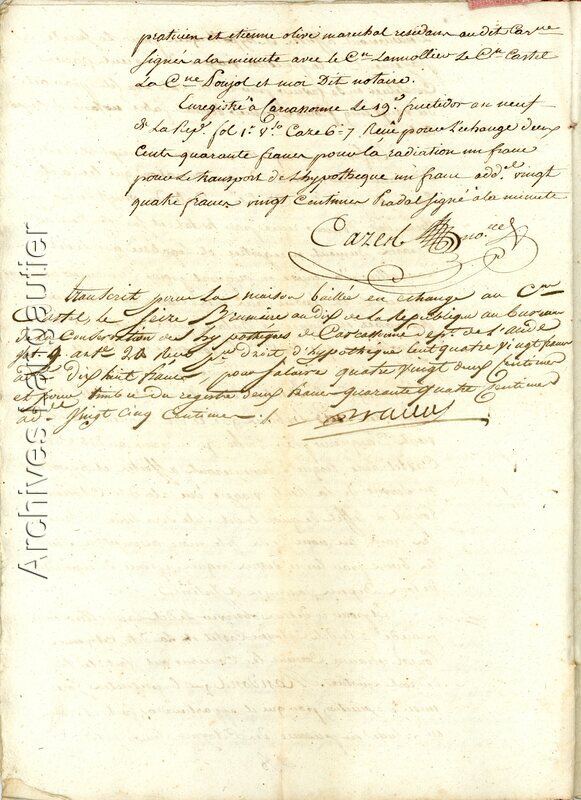 praticien et etienne olive marechal residans audit Carne
signés a la minute avec le Cen Lamollier Le Cen Castel
La Cne Poujol et moi Dit notaire.
Enregistré à Carcassonne Le 19e fructidor an neuf
de La Rep. fol 1er Vo Caze 6 = 7 Reçu pour L'echange deux
Cents quarante francs pour la radiation un franc
pour Le transport de L'hypotheque un franc add.el vingt
quatre francs vingt Centimes Radal signé a la minute
Cazes no.re
transcrit pour La maison baillée en echange au Cen
Castel, le Seize Brumaire an dix de la Republique au Bureau
de la Conservation des hypotheques de Carcassonne de L'aude
art. 20 Reçu pour droit d'hypotheque Cent quatre vingt
dix huit francs, pour Salaire quatre vingt deux Centimes
et pour timbre du registre deux francs quarante quatre Centimes
Vingt Cinq Centimes
Archives.Malgautier